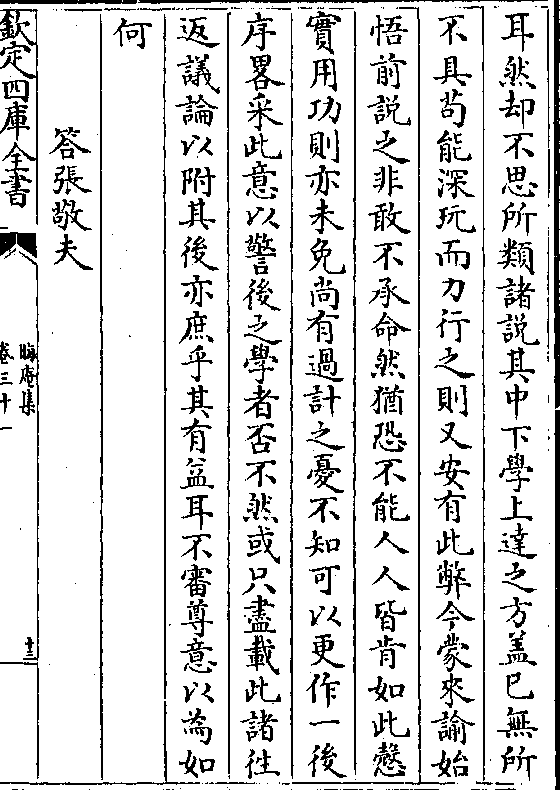 耳然却不思所類諸説其中下學上達之方盖已無所
不具苟能深玩而力行之則又安有此弊今蒙來諭始
悟前説之非敢不承命然猶恐不能人人皆肯如此慤
實用功則亦未免尚有過計之憂不知可以更作一後
序畧采此意以警後之學者否不然或只盡載此諸往
返議論以附其後亦庶乎其有益耳不審尊意以為如
何
答張敬夫
欽定四庫全書
晦庵集
卷三十一
十三